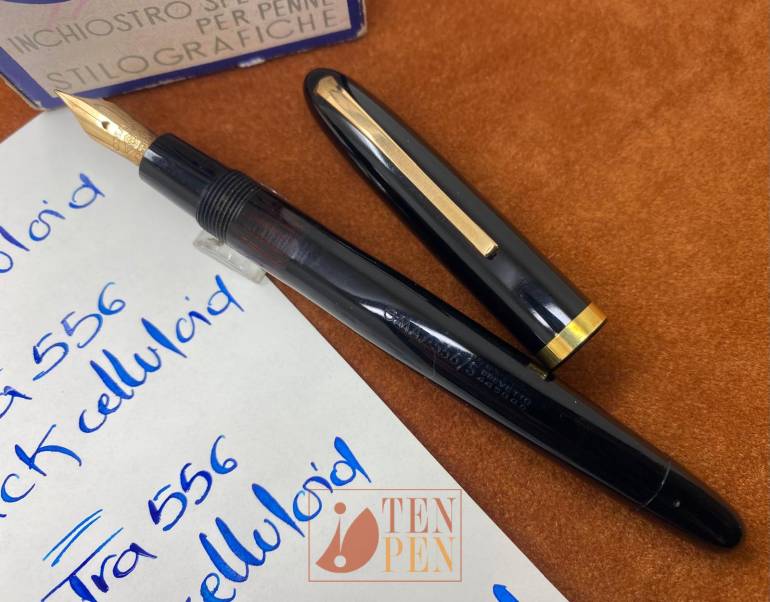 INCHIOSTRO SPE
PER PENNE
STILOGRAFICHE
uloid
a 556
ck celluloid
Tra 556
celluloid
TEN
PEN